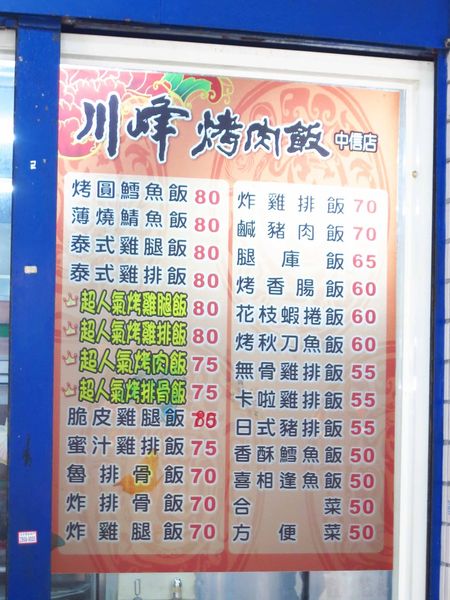 川峰烤肉飯 中信店
烤圓鱈魚飯 80
薄燒鯖魚飯 80
泰式雞腿飯 80
泰式雞排飯 80
超人氣烤雞腿飯 80
超人氣烤雞排飯 80
超人氣烤肉飯 75
超人氣烤排骨飯 75
脆皮雞腿飯
蜜汁雞排飯 75
魯排骨飯 70
炸排骨飯 70
炸雞腿飯 70
炸雞排飯 70
鹹豬肉飯 70
腿庫飯 65
烤香腸飯 60
花枝蝦捲飯 60
烤秋刀魚飯 60
無骨雞排飯 55
卡啦雞排飯 55
日式豬排飯 55
香酥鱈魚飯 50
喜相逢魚飯 50
合菜 50
方便菜 50